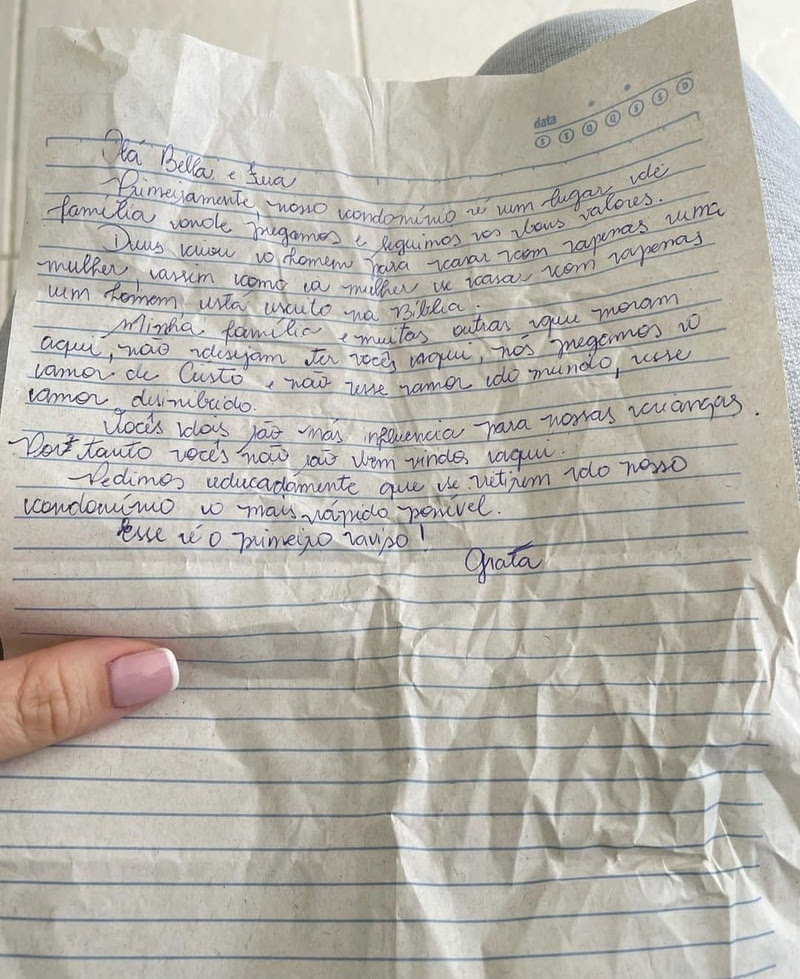 data
S T Q Q S S D
Olá Bella e Lua
Primeiramente, nosso condomínio é um lugar de
família onde pregamos e seguimos os bons valores.
Deus criou o homem para casar com apenas uma
mulher, assim como a mulher se casar com apenas
um homem, está escrito na Bíblia.
Minha família e muitas outras que moram
aqui, não desejam ter vocês aqui, nós pregamos o
amor de Cristo e não esse amor do mundo, esse
amor desinibido.
Vocês dois são más influencia para nossas crianças.
Portanto vocês não são bem vindos aqui.
Pedimos educadamente que se retirem do nosso
condomínio o mais rápido possível.
Esse é o primeiro aviso!
Grata